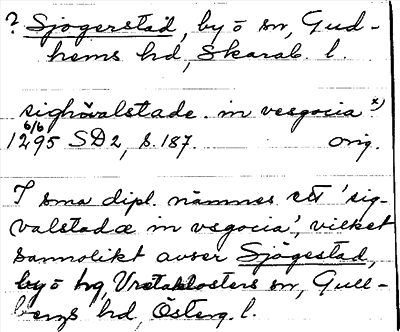 ? Sjögerstad, by ō sn, Gud-
hems hd, Skarab. l.
sighövalstade in vesgocia x)
6/6
1295 SD2, s. 187. orig.
I sma dipl. nämnes ett 'sig-
valstadæ in vesgocia', vilket
sannolikt avser Sjögestad,
by ō hg, Vretaklosters sn, Gull-
bergs hd, Österg. l.